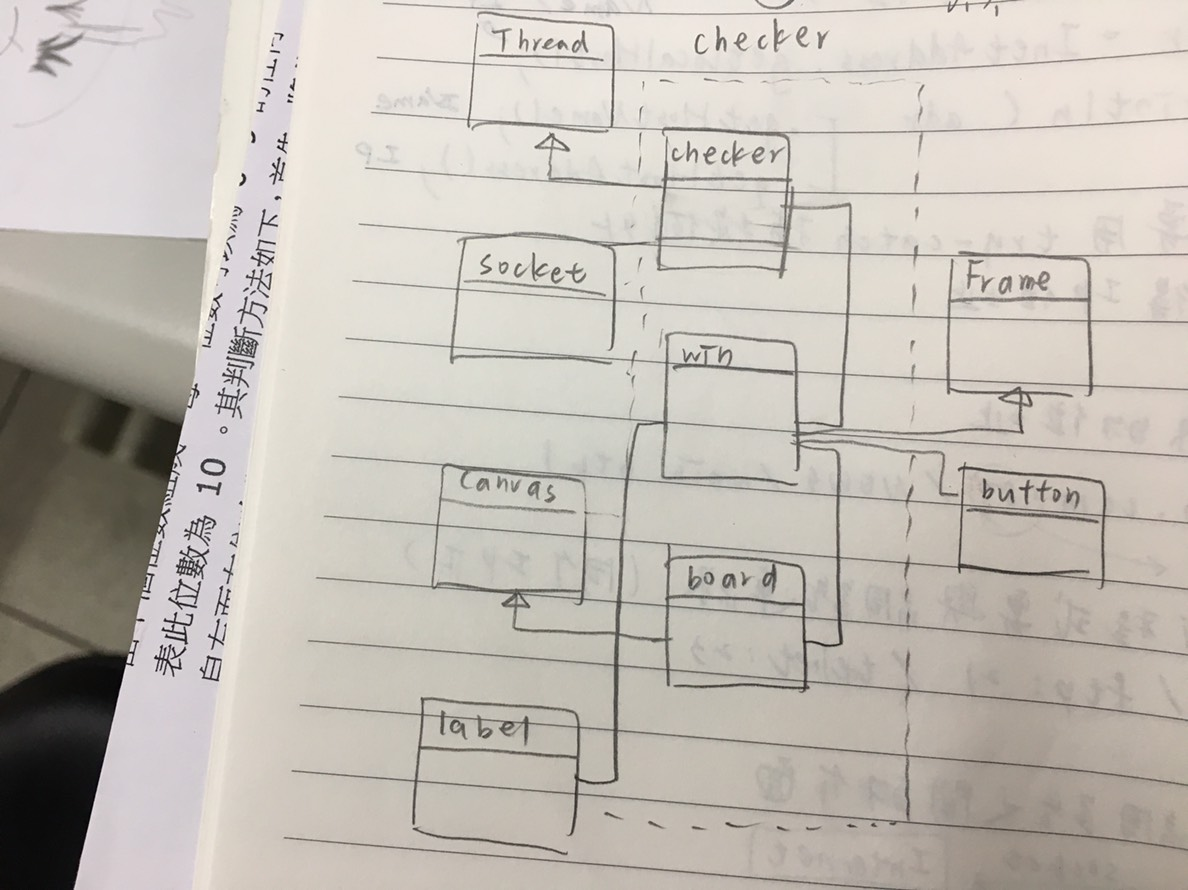 Thread
checker
checker
socket
Frame
win
canvas
button
board
label
表此位數為 10 。其判斷方法如下，